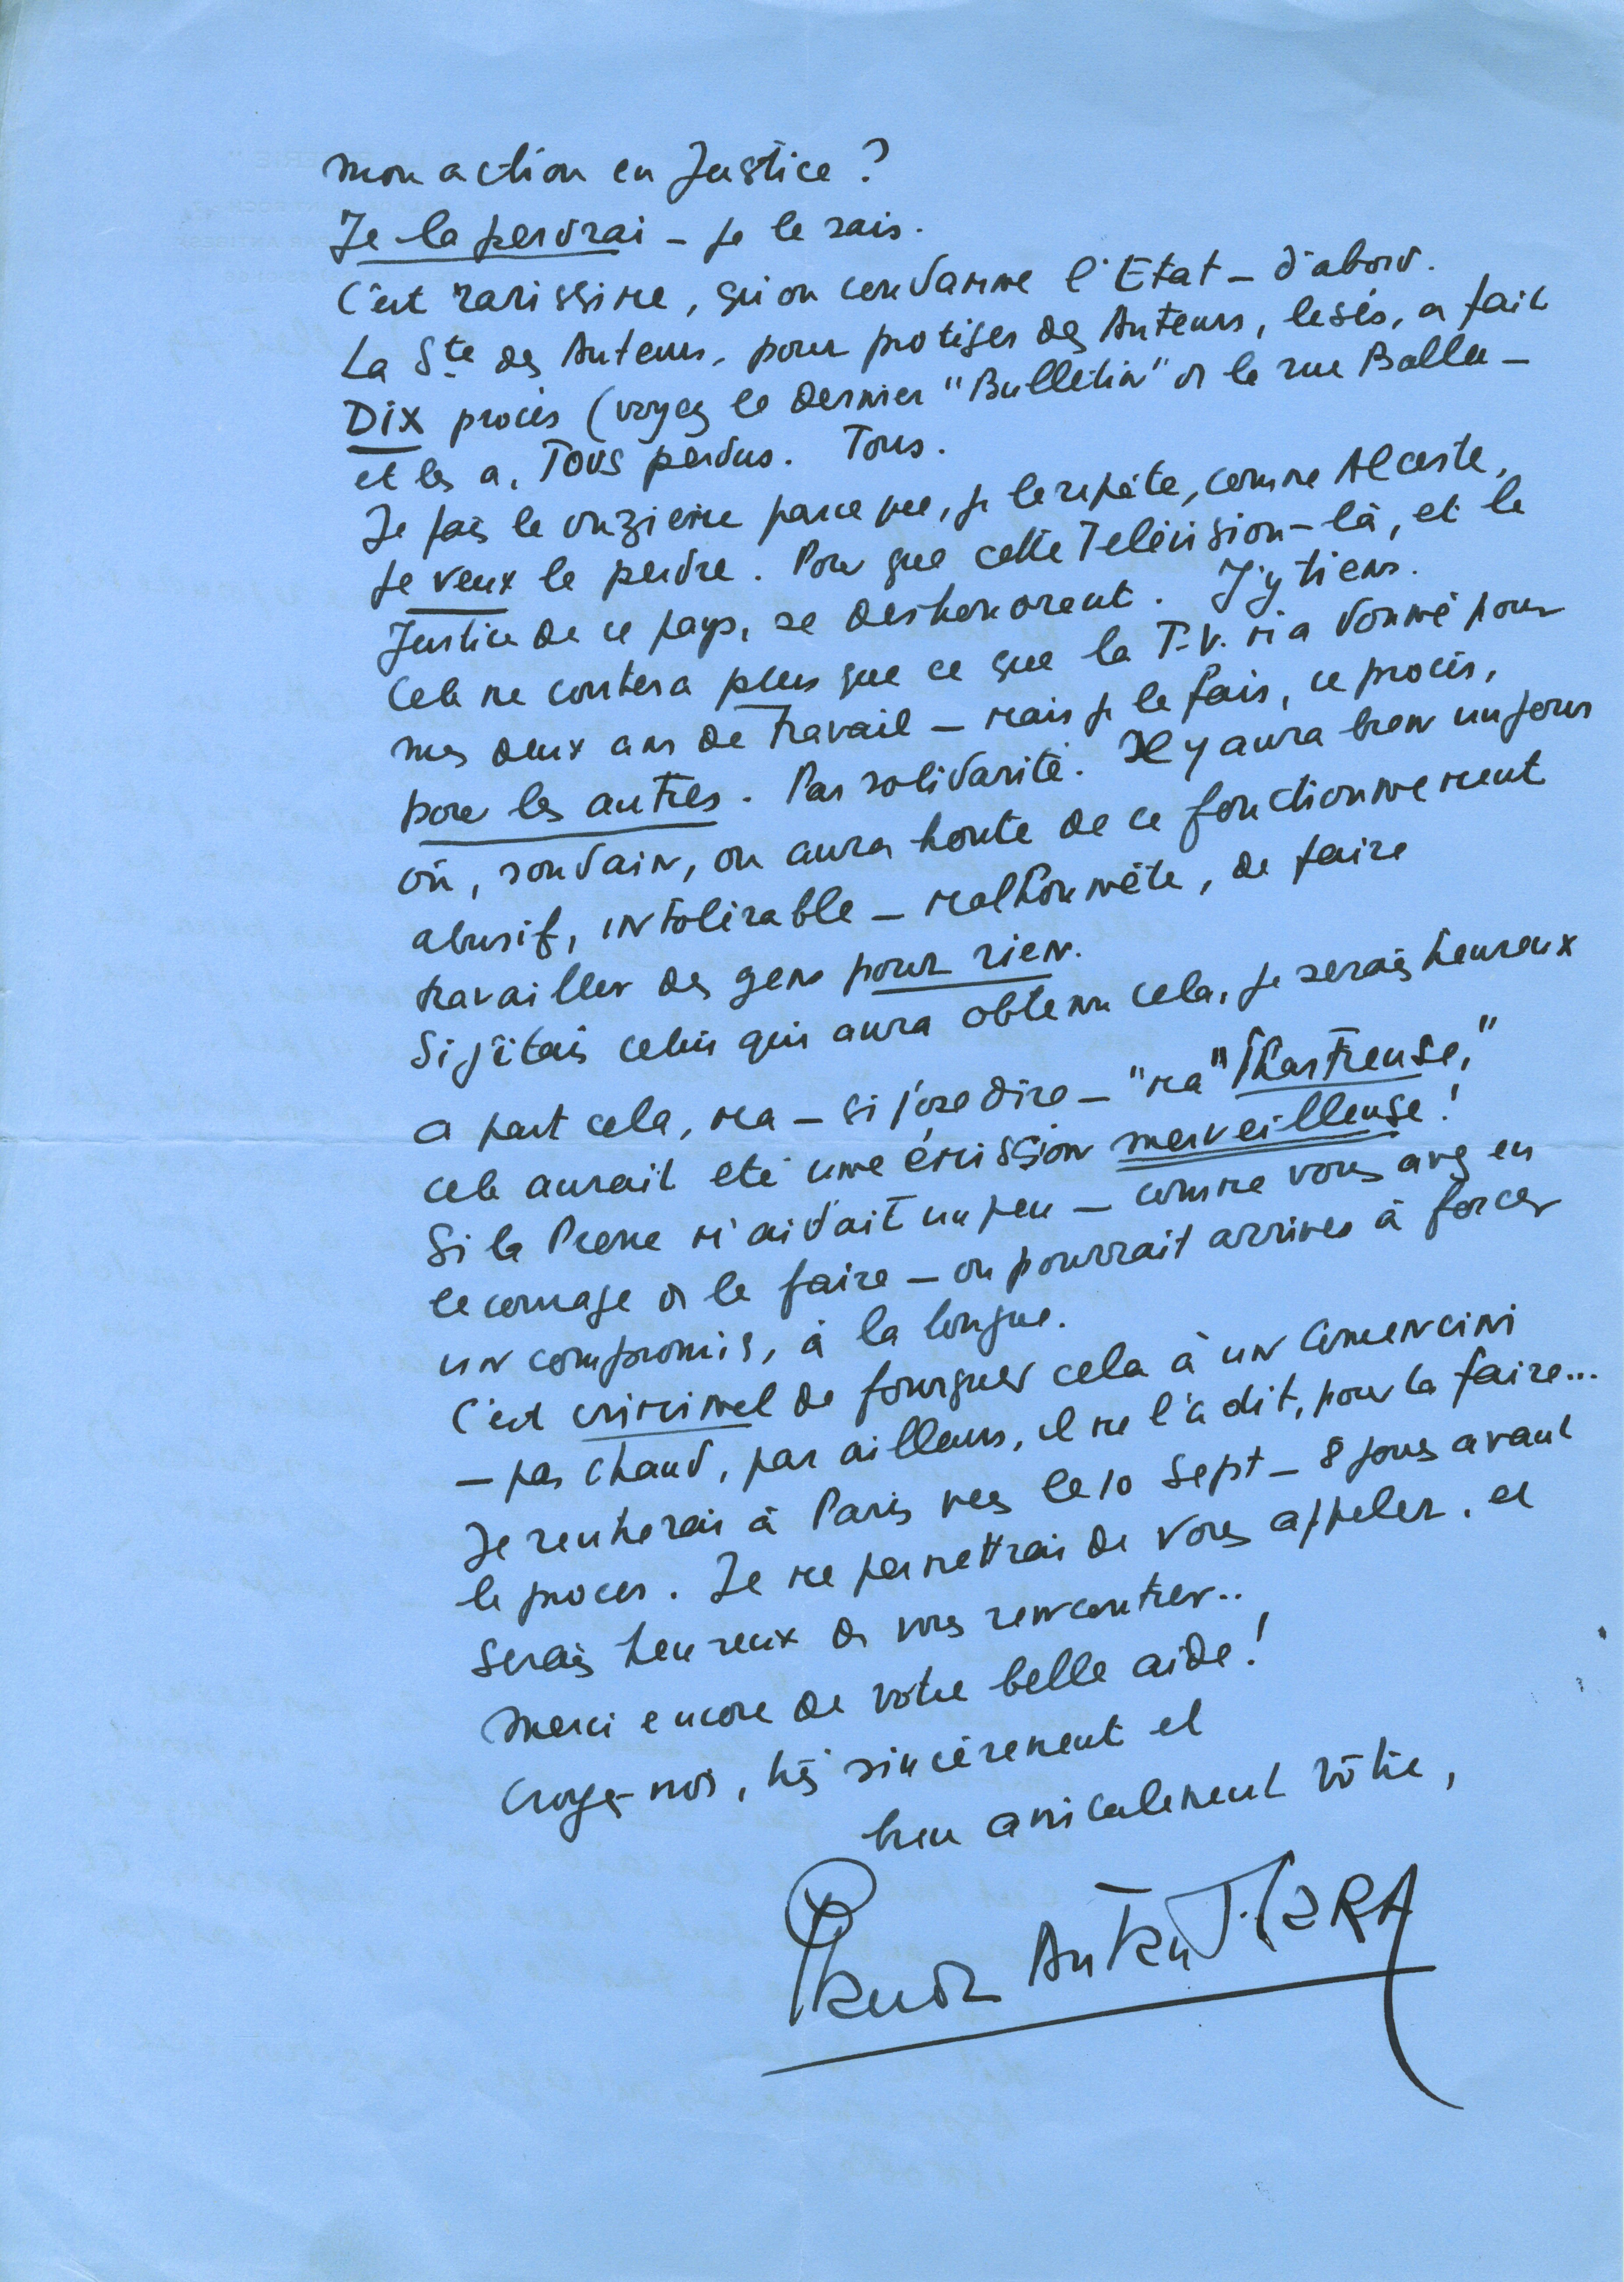 mon action en Justice ?
Je la perdrai - je le sais.
C'est rarissime, qu'on condamne l'Etat - d'abord.
La Sté des Auteurs, pour protéger des Auteurs, lésés, a fait
DIX procès (voyez le dernier "Bulletin" de la rue Ballu -
et les a, TOUS perdus. Tous.
Je fais le onzième parce que, je le répète, comme Alceste,
je veux le perdre. Pour que cette Télévision-là, et la
Justice de ce pays, se deshonorent. J'y tiens.
Cela me coutera plus que ce que la T.V. m'a donné pour
mes deux ans de travail - mais je le fais, ce procès,
pour les autres. Par solidarité. Il y aura bien un jour
où, soudain, on aura honte de ce fonctionnement
abusif, intolérable - malhonnête, de faire
travailler des gens pour rien.
Si j'étais celui qui aura obtenu cela, je serais heureux
a part cela, ma - si j'ose dire - "ma" "Chartreuse,"
cela aurait été une émission merveilleuse !
Si la Presse m'aidait un peu - comme vous avez eu
le courage de le faire - on pourrait arriver à forcer
un compromis, à la longue.
C'est criminel de fourguer cela à un Comencini
- pas chaud, par ailleurs, il me l'a dit, pour la faire...
Je rentrerai à Paris vers le 10 Sept - 8 jours avant
le procès. Je me permettrai de vous appeler. et
serais heureux de vous rencontrer..
Merci encore de votre belle aide !
Croyez-moi, très sincèrement et
bien amicalement vôtre,
Claude AUTANT-LARA